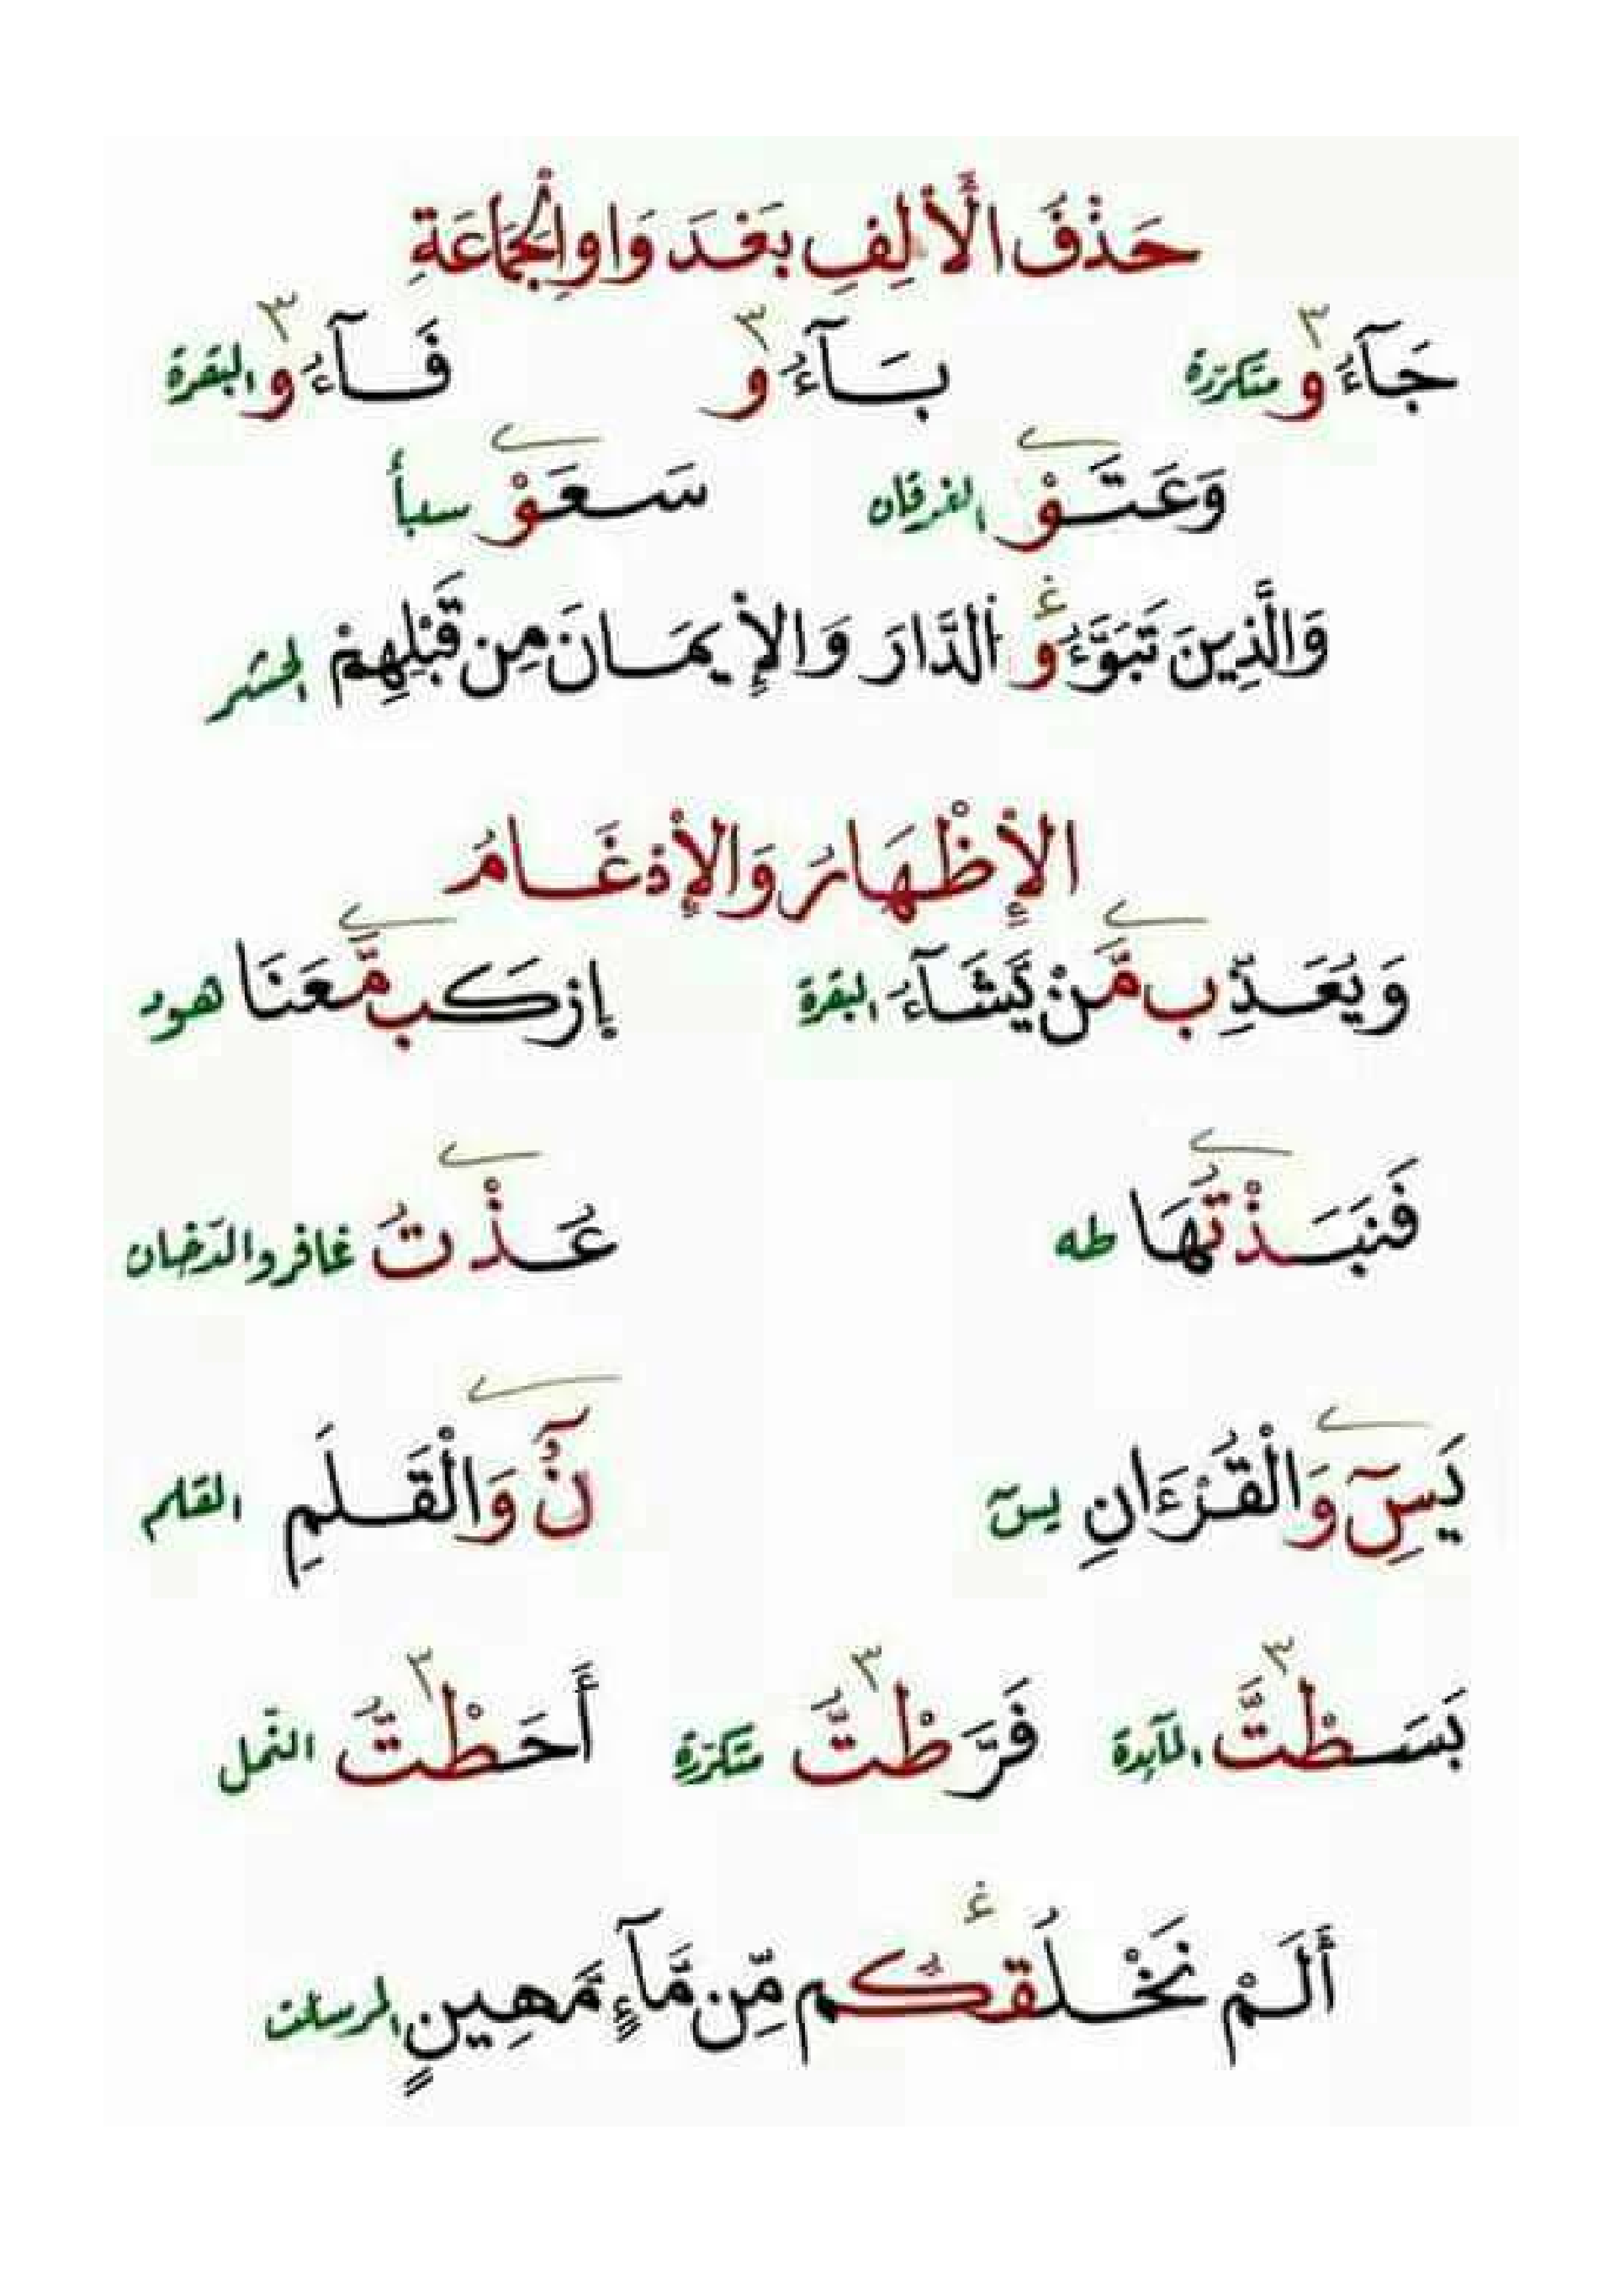 حَذْفُ الْأَلِفِ بَعْدَ وَاوِ الْجَمَاعَةِ
٣ ٣ ٣
جَآءُو متكررة بَآءُو فَآءُو البقرة
وَعَتَوْ الفرقان سَعَوْ سبأ
وَالَّذِينَ تَبَوَّءُو الدَّارَ وَالْإِيمَانَ مِن قَبْلِهِمْ الحشر
الْإِظْهَارُ وَالْإِدْغَامُ
وَيُعَذِّب مَّنْ يَّشَآءُ البقرة اِرْكَب مَّعَنَا هود
فَنَبَذْتُهَا طه عُذْتُ غافر والدّخان
يَسِٓ وَالْقُرْءَانِ يسٓ نٓ وَالْقَلَمِ القلم
٣ ٣ ٣
بَسَطْتَّ المآيدة فَرَّطْتُّ متكرّرة أَحَطْتُّ النّمل
أَلَمْ نَخْلُقكُّم مِّن مَّآءٍ مَّهِينٍ المرسلت